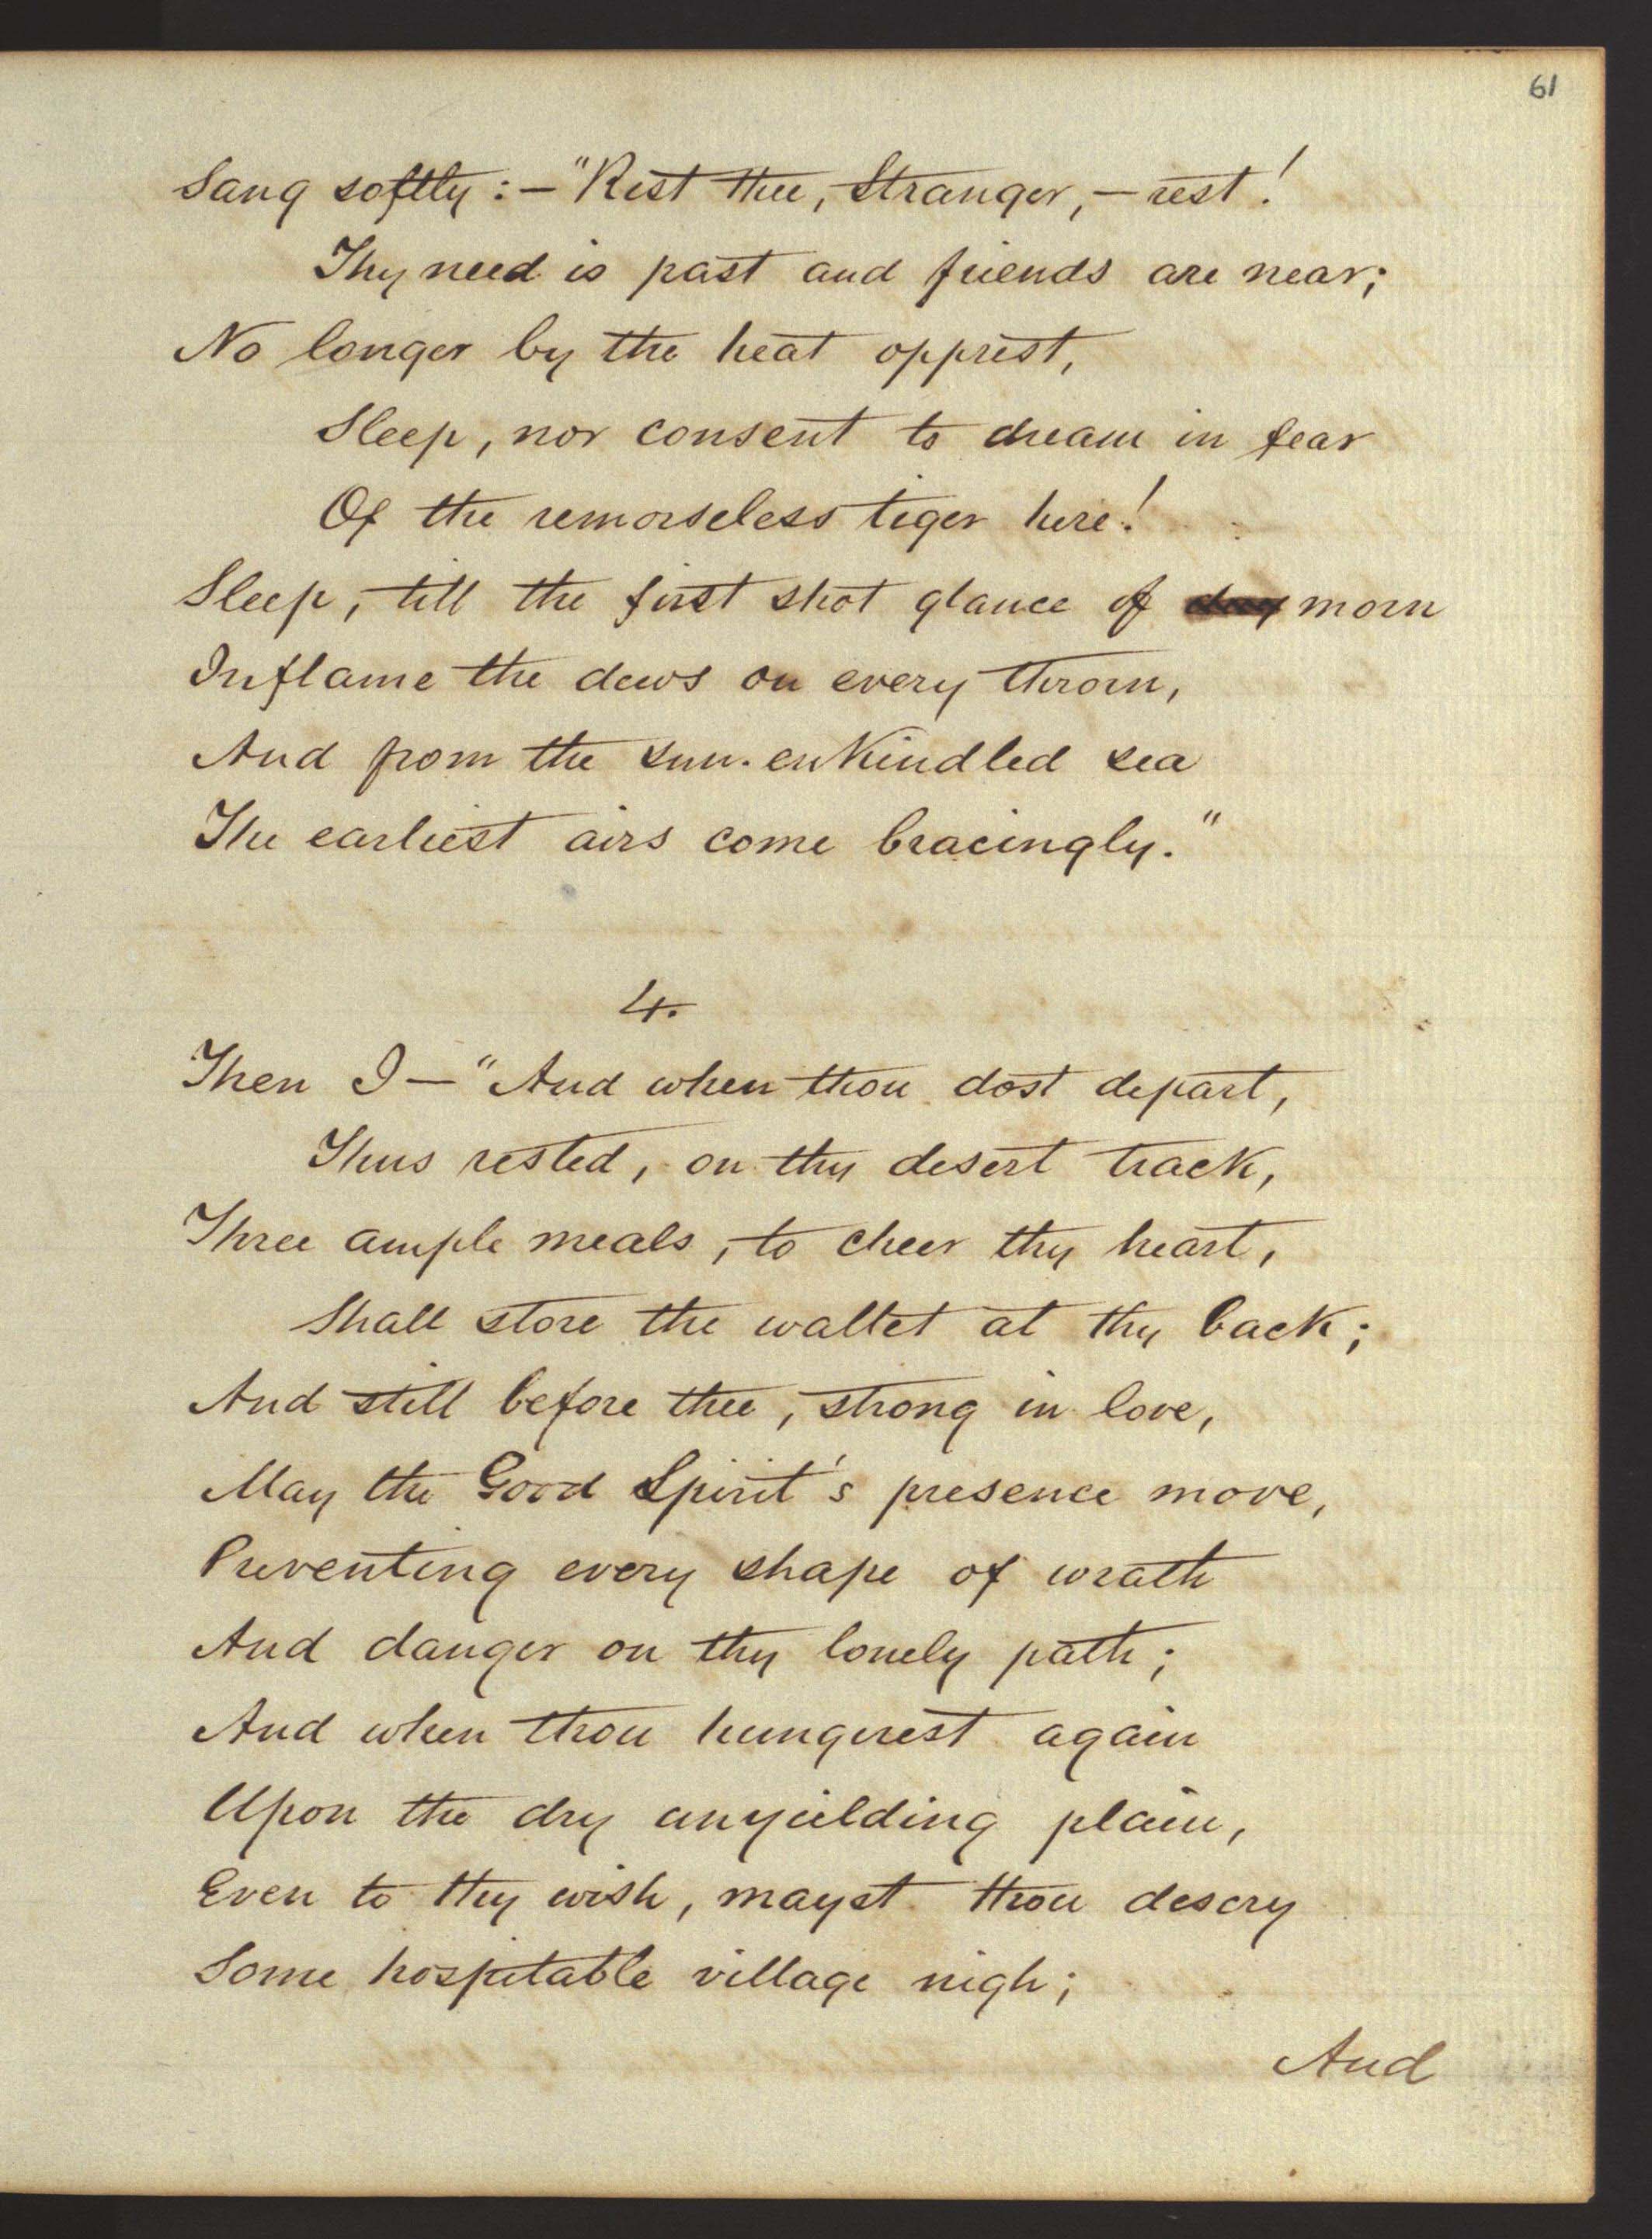 61
Sang softly:—"Rest thee, Stranger,—rest!
Thy need is past and friends are near;
No longer by the heat opprest,
Sleep, nor consent to dream in fear
Of the remorseless tiger here!
Sleep, till the first shot glance of day morn
Inflame the dews on every throrn,
And from the sun-enkindled sea
The earliest airs come bracingly."
4.
Then I—"And when thou dost depart,
Thus rested, on thy desert track,
Three ample meals, to cheer thy heart,
Shall store the wallet at thy back;
And still before thee, strong in love,
May the Good Spirit's presence move,
Preventing every shape of wrath
And danger on thy lonely path;
And when thou hungerest again
Upon the dry unyielding plain,
Even to thy wish, mayst thou descry
Some hospitable village nigh;
And